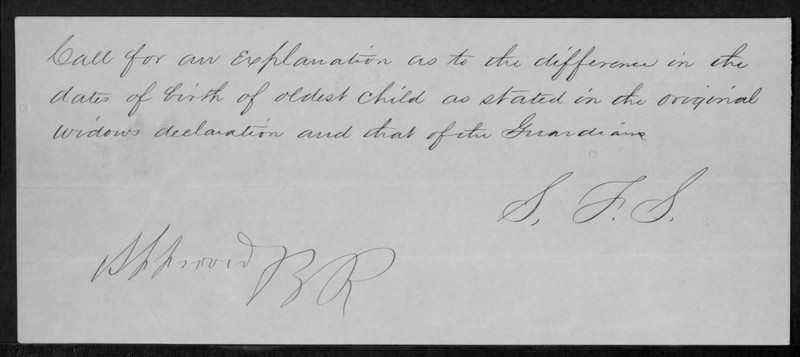 Call for an explanation as to the difference in the
dates of birth of oldest child as stated in the original
widows declaration and that of the Guardians
S. F. S.
Approved B R